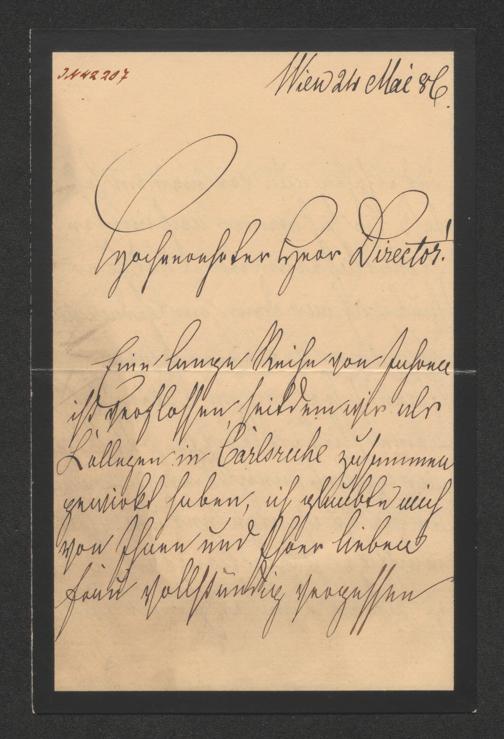 I.N.42207
Wien 24 Mai 86.
Hochverehrter Herr Director!
Eine lange Reihe von Jahren
ist verflossen, seitdem wir als
Collegen in Carlsruhe zusammen
gewirkt haben, ich glaubte mich
von Ihnen und Ihrer lieben
Frau vollständig vergessen